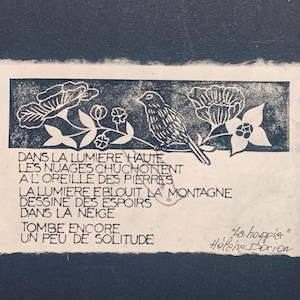 DANS LA LUMIERE HAUTE
LES NUAGES CHUCHOTENT
A L'OREILLE DES PIERRES
LA LUMIERE EBLOUIT LA MONTAGNE
DESSINE DES ESPOIRS
DANS LA NEIGE
TOMBE ENCORE
UN PEU DE SOLITUDE
Hélène Dorion